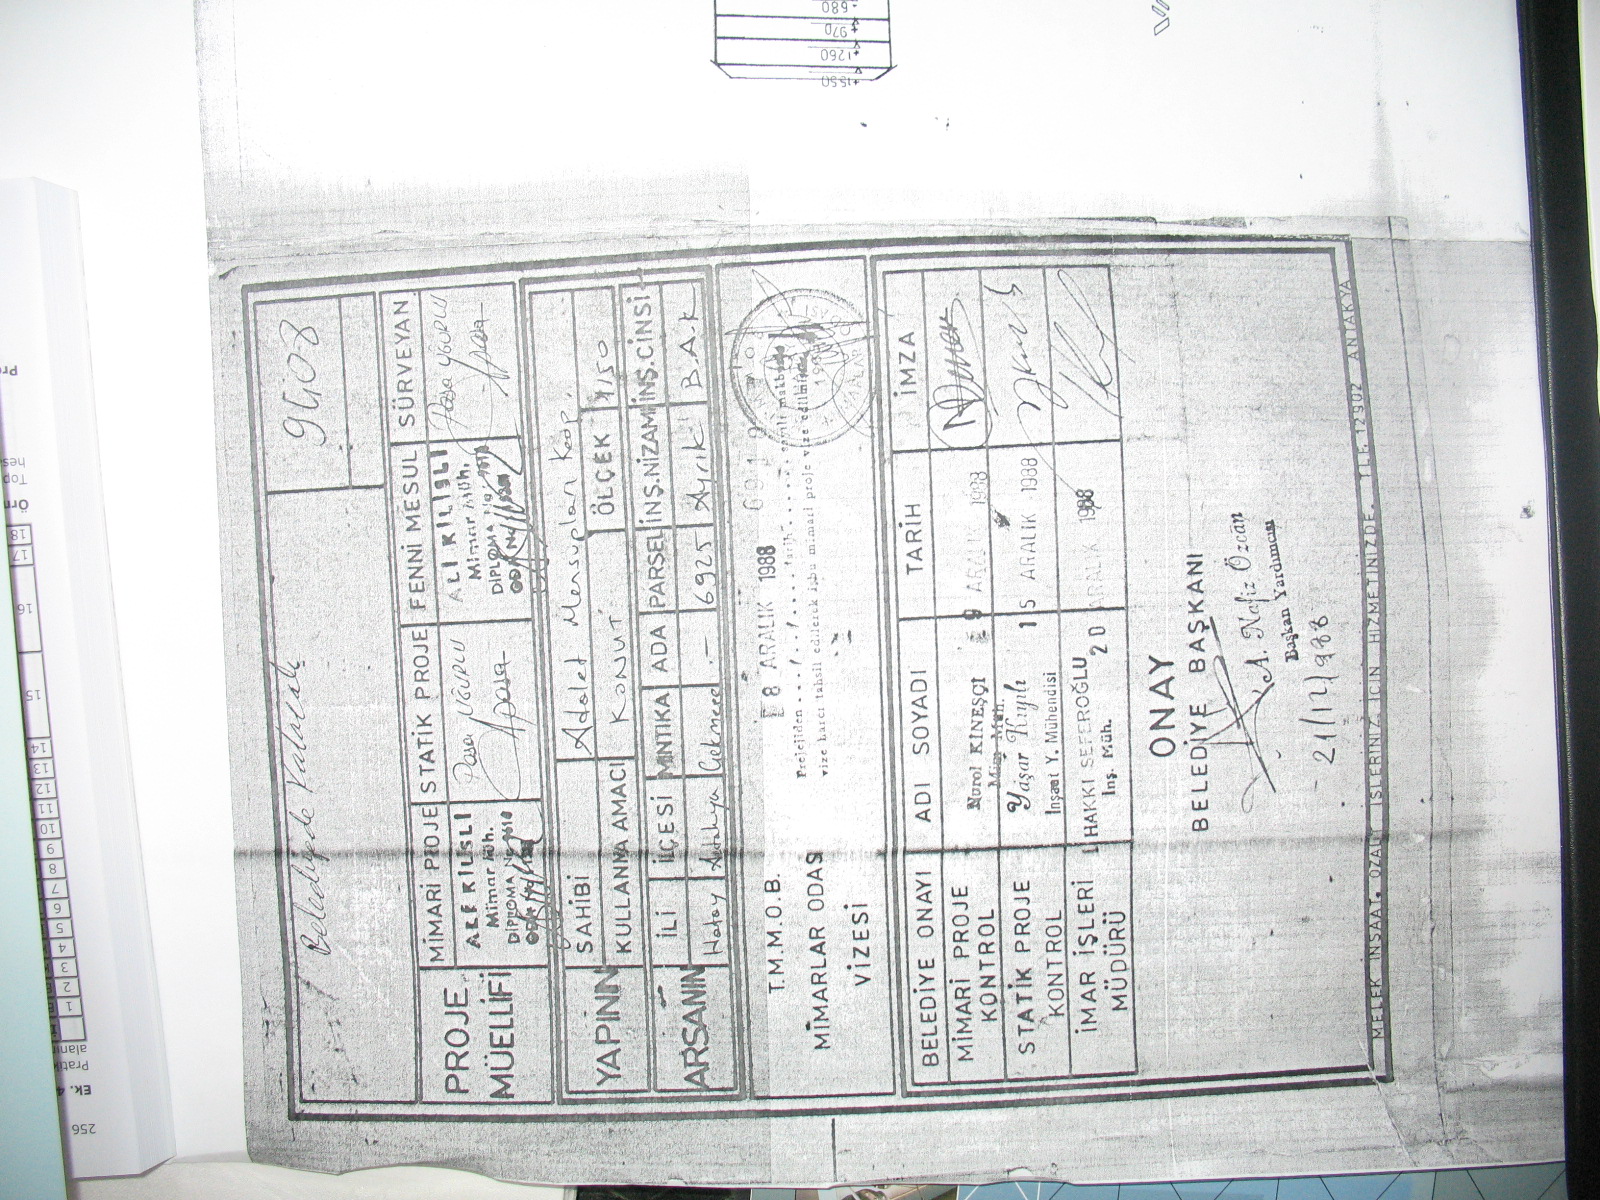 Belediyede Kalacak
9408
PROJE MÜELLİFİ
MİMARİ PROJE
STATİK PROJE
FENNİ MESUL
SÜRVEYAN
ALİ KİLİSLİ
Mimar Müh.
DIPLOMA No.
Paşa UĞURLU
ALİ KİLİSLİ
Mimar Müh.
DIPLOMA No.
YAPININ
SAHİBİ
Adalet Mensupları Koop.
KULLANMA AMACI
KONUT
ÖLÇEK
1/50
ARSANIN
İLİ
İLÇESİ
MINTIKA
ADA
PARSEL
İNŞ.NİZAMI
İNŞ.CİNSİ
Hatay
Antakya
Çekmece
-
6925
Ayrık
B.A.K
T.M.M.O.B.
MİMARLAR ODASI
VİZESİ
8 ARALIK 1988
vize harcı tahsil edilerek işbu mimari proje vize edilmiştir
BELEDİYE ONAYI
ADI SOYADI
TARİH
İMZA
MİMARİ PROJE KONTROL
Nurol KİNEŞÇİ
Mim. Müh.
9 ARALIK 1988
STATİK PROJE KONTROL
Yaşar Kıyılı
İnşaat Y. Mühendisi
15 ARALIK 1988
İMAR İŞLERİ MÜDÜRÜ
HAKKI SEFEROĞLU
İnş. Müh.
20 ARALIK 1988
ONAY
BELEDİYE BAŞKANI
A. Nafiz Özcan
Başkan Yardımcısı
21/12/988
MELEK İNŞAAT. OZALİT İŞLERİNİZ İÇİN HİZMETİNİZDE. TLF. 12902 ANTAKYA
+1550
+1260
+970
+680
256
Ek. 4
Pratik
1
2
3
4
5
6
7
8
9
10
11
12
13
14
15
16
17
18